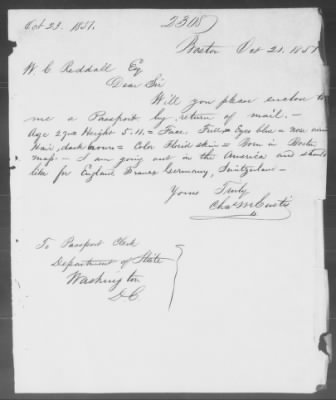 Oct 23. 1857.
2308
Boston Oct 21. 1857
W. C. Reddall Esq
Dear Sir
Will you please enclose to
me a Passport by return of mail. —
Age 27 = Height 5.11. = Face. Full = Eyes blue = nose
Hair, dark brown = Color Florid skin = Born in Boston
mass. — I am going out in the America and should
like for England France Germany, Switzerland —
Yours Truly
Chas M Curtis
To Passport Clerk
Department of State
Washington
D C